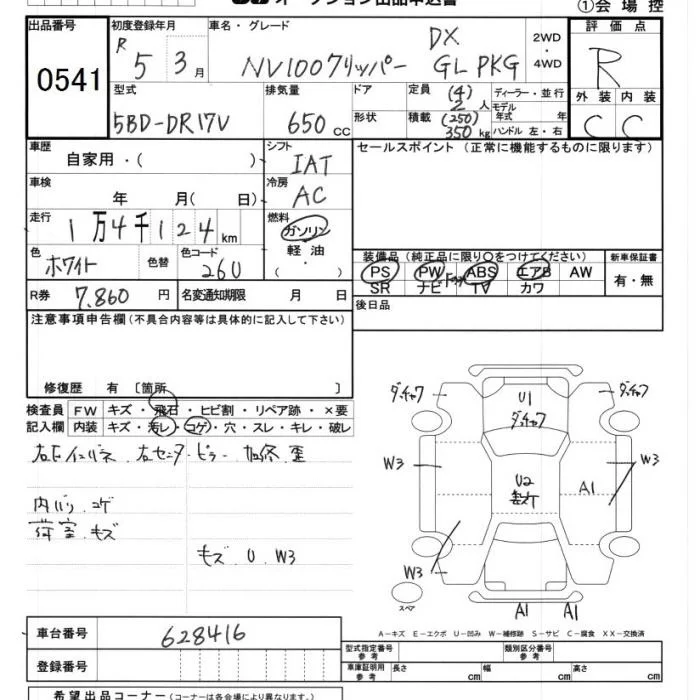 ①会場控
出品番号 0541
初度登録年月 R 5 3月
車名・グレード NV100クリッパー DX GL PKG
2WD・4WD
評価点 R
型式 5BD-DR17V
排気量 650 cc
ドア 形状
定員 (4) 2人
積載 (250) 350 kg
ディーラー・並行
モデル年式 年
ハンドル 左・右
外装 内装
C C
車歴 自家用・( )
シフト IAT
セールスポイント (正常に機能するものに限ります)
車検 年 月(日)
冷房 AC
走行 1万4千124km
燃料 ガソリン 軽油 ( )
色 ホワイト 色替 色コード 26U
装備品 (純正品に限り○をつけてください) 新車保証書
PS PW ABS エアB AW 有・無
SR ナビ TV カワ
R券 7,860円 名変通知期限 月 日
後日品
注意事項申告欄(不具合内容等は具体的に記入して下さい)
修復歴 有 〔箇所 〕
検査員 FW キズ・飛石・ヒビ割・リペア跡・×要
記入欄 内装 キズ・汚レ・コゲ・穴・スレ・キレ・破レ
右Fインパネ 右センターピラー 加修 歪
内バリ コゲ
荷室 キズ
キズ U W3
ダッチャク U1 ダッチャク ダッチャク
W3 U2 A1 W3
W3
スペア
A1 A1
A-キズ E-エクボ U-凹み W-補修跡 S-サビ C-腐食 XX-交換済
車台番号 628416
型式指定番号 参考 類別区分番号 参考
登録番号
車庫証明用 参考 長さ cm 幅 cm 高さ cm
希望出品コーナー (コーナーは各会場により異なります。)